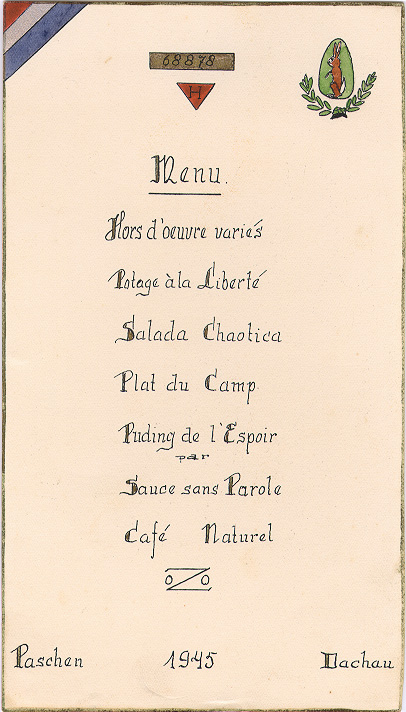 68878
H
Menu.
Hors d'oeuvre variés
Potage à la Liberté
Salada Chaotica
Plat du Camp
Puding de l'Espoir
par
Sauce sans Parole
Café Naturel
0/0
Paschen 1945 Dachau